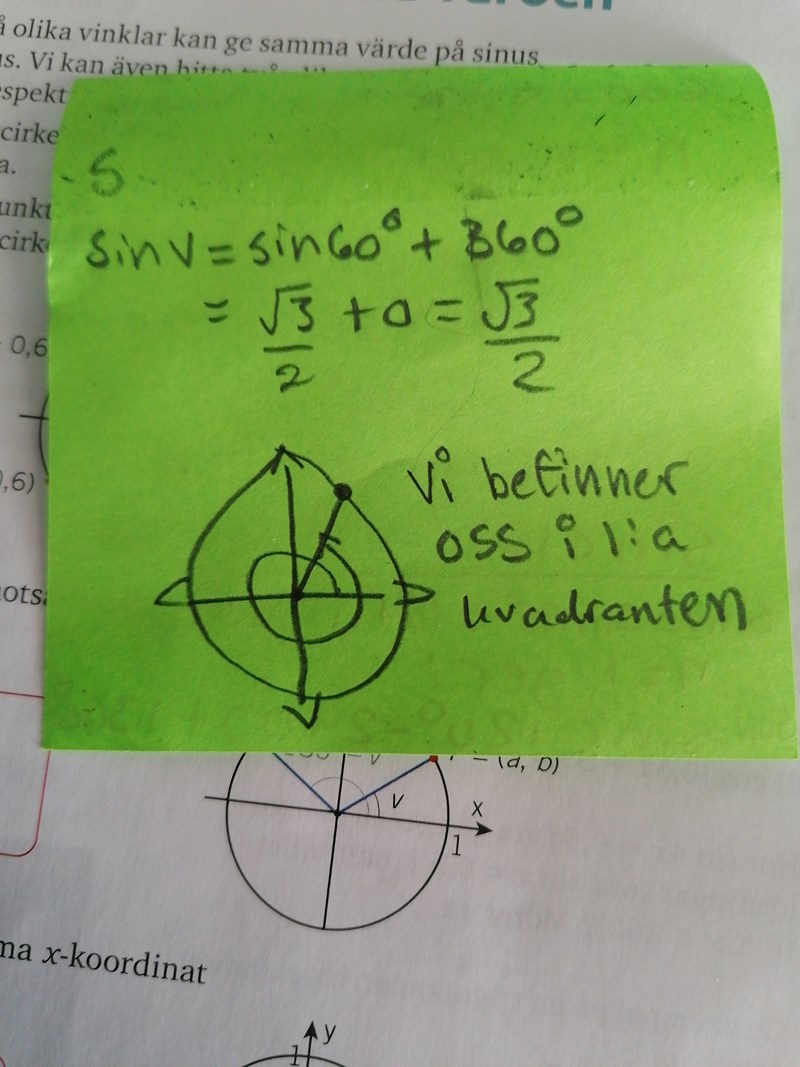 å olika vinklar kan ge samma värde på sinus
us. Vi kan även hitta
espekt
cirke
a.
unkt
cirk
5
sin v = sin 60° + 360°
= √3/2 + 0 = √3/2
0,6
,6)
Vi befinner
oss i 1:a
kvadranten
otsa
= (a, b)
v
x
1
ma x-koordinat
y
1